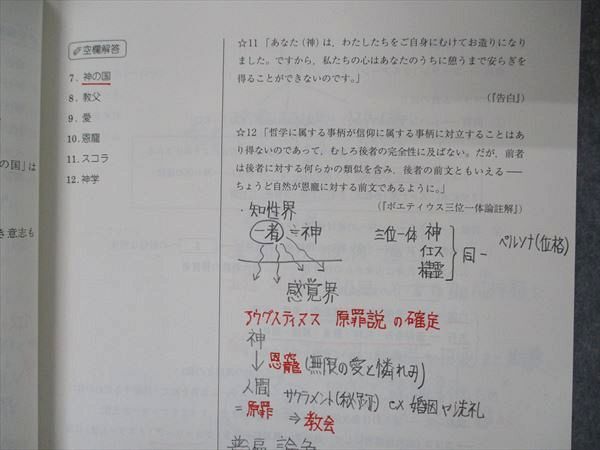 の国」は
き意志も
空欄解答
7. 神の国
8. 教父
9. 愛
10. 恩寵
11. スコラ
12. 神学
☆11 「あなた（神）は，わたしたちをご自身にむけてお造りになり
ました。ですから，私たちの心はあなたのうちに憩うまで安らぎを
得ることができないのです。」
（『告白』）
☆12 「哲学に属する事柄が信仰に属する事柄に対立することはあ
り得ないのであって，むしろ後者の完全性に及ばない。だが，前者
は後者に対する何らかの類似を含み，後者の前文ともいえる――
ちょうど自然が恩寵に対する前文であるように。」
（『ボエティウス三位一体論註解』）
・知性界
一者 ≒神
感覚界
三位一体 神
イエス
精霊
同一 ペルソナ(位格)
アウグスティヌス 原罪説 の確定
神
↓恩寵(無限の愛と憐れみ)
人間
=原罪
サクラメント(秘蹟) ex 婚姻や洗礼
⇒教会
普遍論争